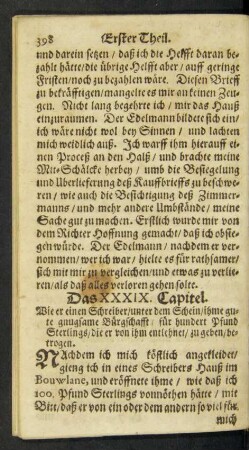 398 Erster Theil.
und darein setzen / daß ich die Helfft daran be-
zahlt hätte / die übrige Helfft aber / auff geringe
Fristen / noch zu bezahlen wäre. Diesen Brieff
zu bekräfftigen / mangelte es mir an keinen Zeu-
gen. Nicht lang begehrte ich / mir das Hauß
einzuraumen. Der Edelmann bildete sich ein /
ich wäre nicht wol bey Sinnen / und lachten
mich weidlich auß. Ich warff ihm hierauff ei-
nen Proceß an den Halß / und brachte meine
Mit-Schälcke herbey / umb die Besiegelung
und Uberlieferung deß Kauffbrieffs zu beschwe-
ren / wie auch die Besichtigung deß Zimmer-
manns / und mehr andere Umbstände / meine
Sache gut zu machen. Erstlich wurde mir von
dem Richter Hoffnung gemacht / daß ich obsie-
gen würde. Der Edelmann / nachdem er ver-
nommen / wer ich war / hielte es für rathsamer /
sich mit mir zu vergleichen / und etwas zu verlie-
ren / als daß alles verloren gehen solte.
Das XXXIX. Capitel.
Wie er einen Schreiber / unter dem Schein / ihme gu-
te gnugsame Bürgschafft / für hundert Pfund
Sterlings / die er von ihm entlehnet / zu geben / be-
trogen.
NAchdem ich mich köstlich angekleidet /
gieng ich in eines Schreibers Hauß im
Bouwlane, und eröffnete ihme / wie daß ich
100. Pfund Sterlings vonnöthen hätte / mit
Bitt / daß er von ein oder dem andern so viel für
mich